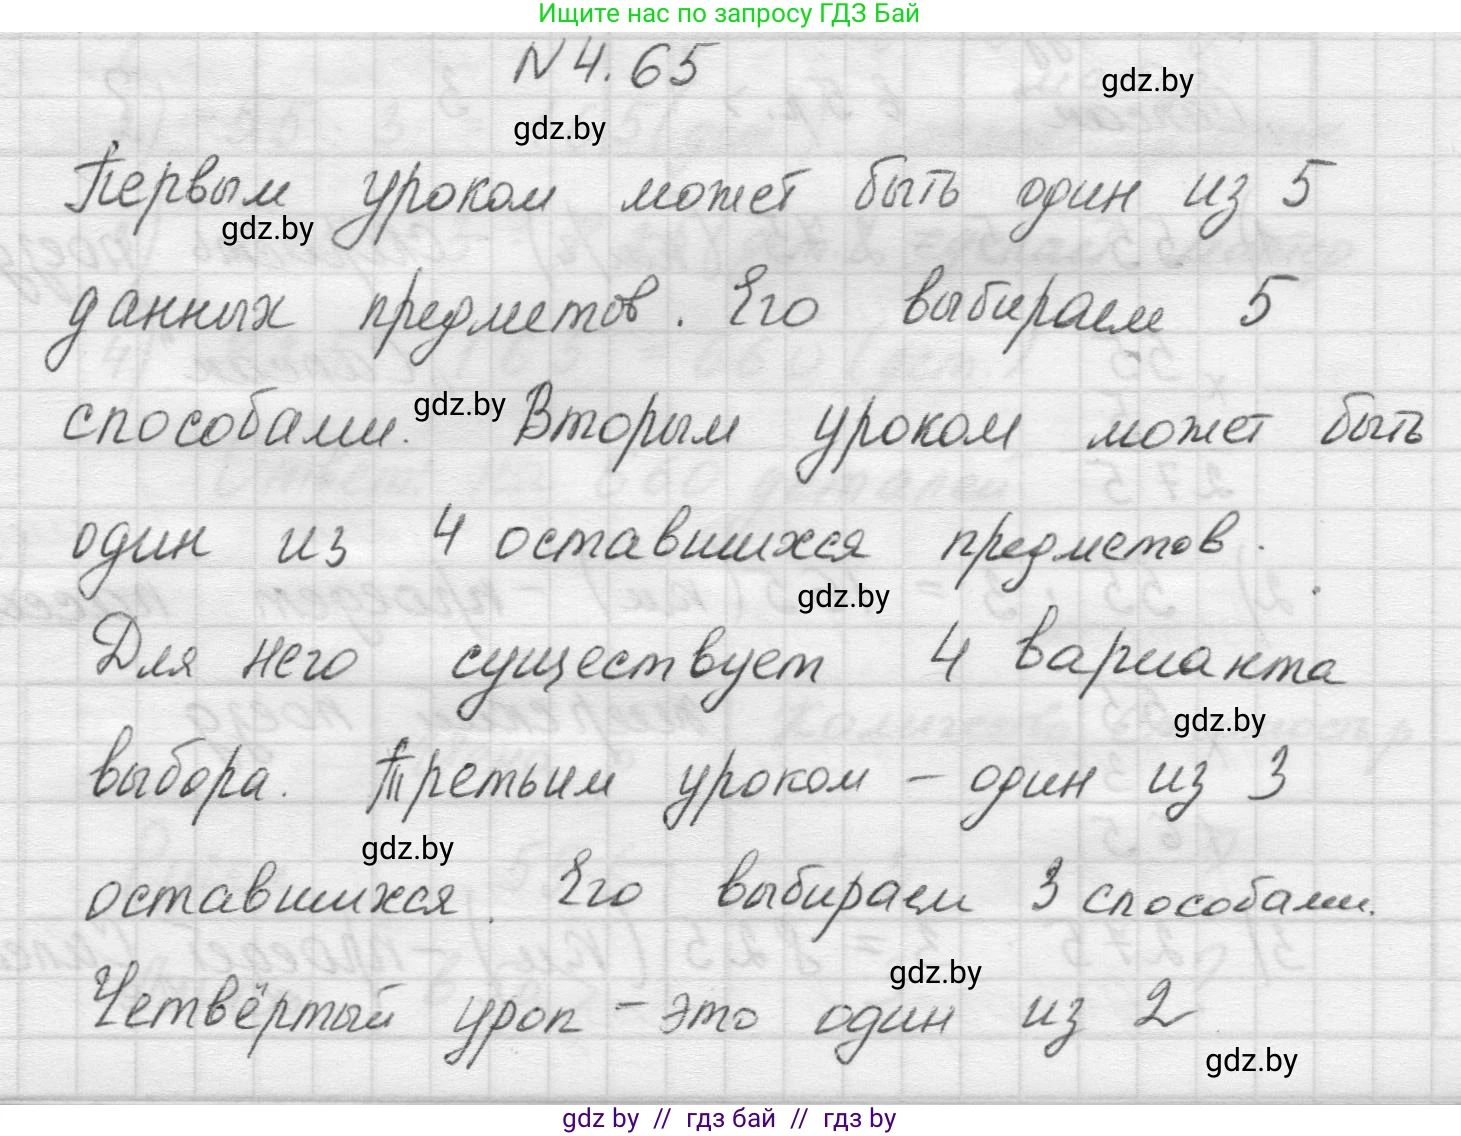 Ищите нас по запросу ГДЗ Бай
N 4.65
gdz.by
gdz.by
Первым уроком может быть один из 5
gdz.by
данных предметов. Его выбираем 5
способами. gdz.by Вторым уроком может быть
один из 4 оставшихся предметов.
gdz.by
Для него существует 4 варианта
gdz.by
выбора. Третьим уроком – один из 3
gdz.by
оставшихся. Его выбираем 3 способами.
gdz.by
Четвёртый урок – это один из 2
gdz.by
gdz by // гдз бай // гдз by